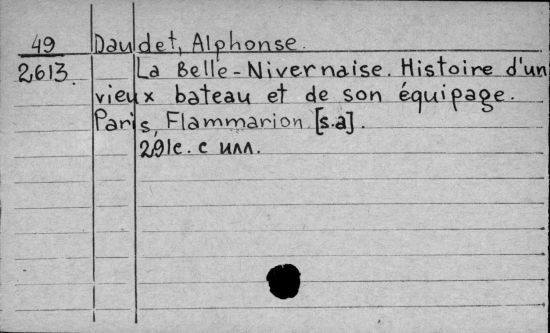 49 Daudet, Alphonse.
2613. La Belle-Nivernaise. Histoire d'un
vieux bateau et de son équipage.
Paris, Flammarion [s.a].
291с. с илл.